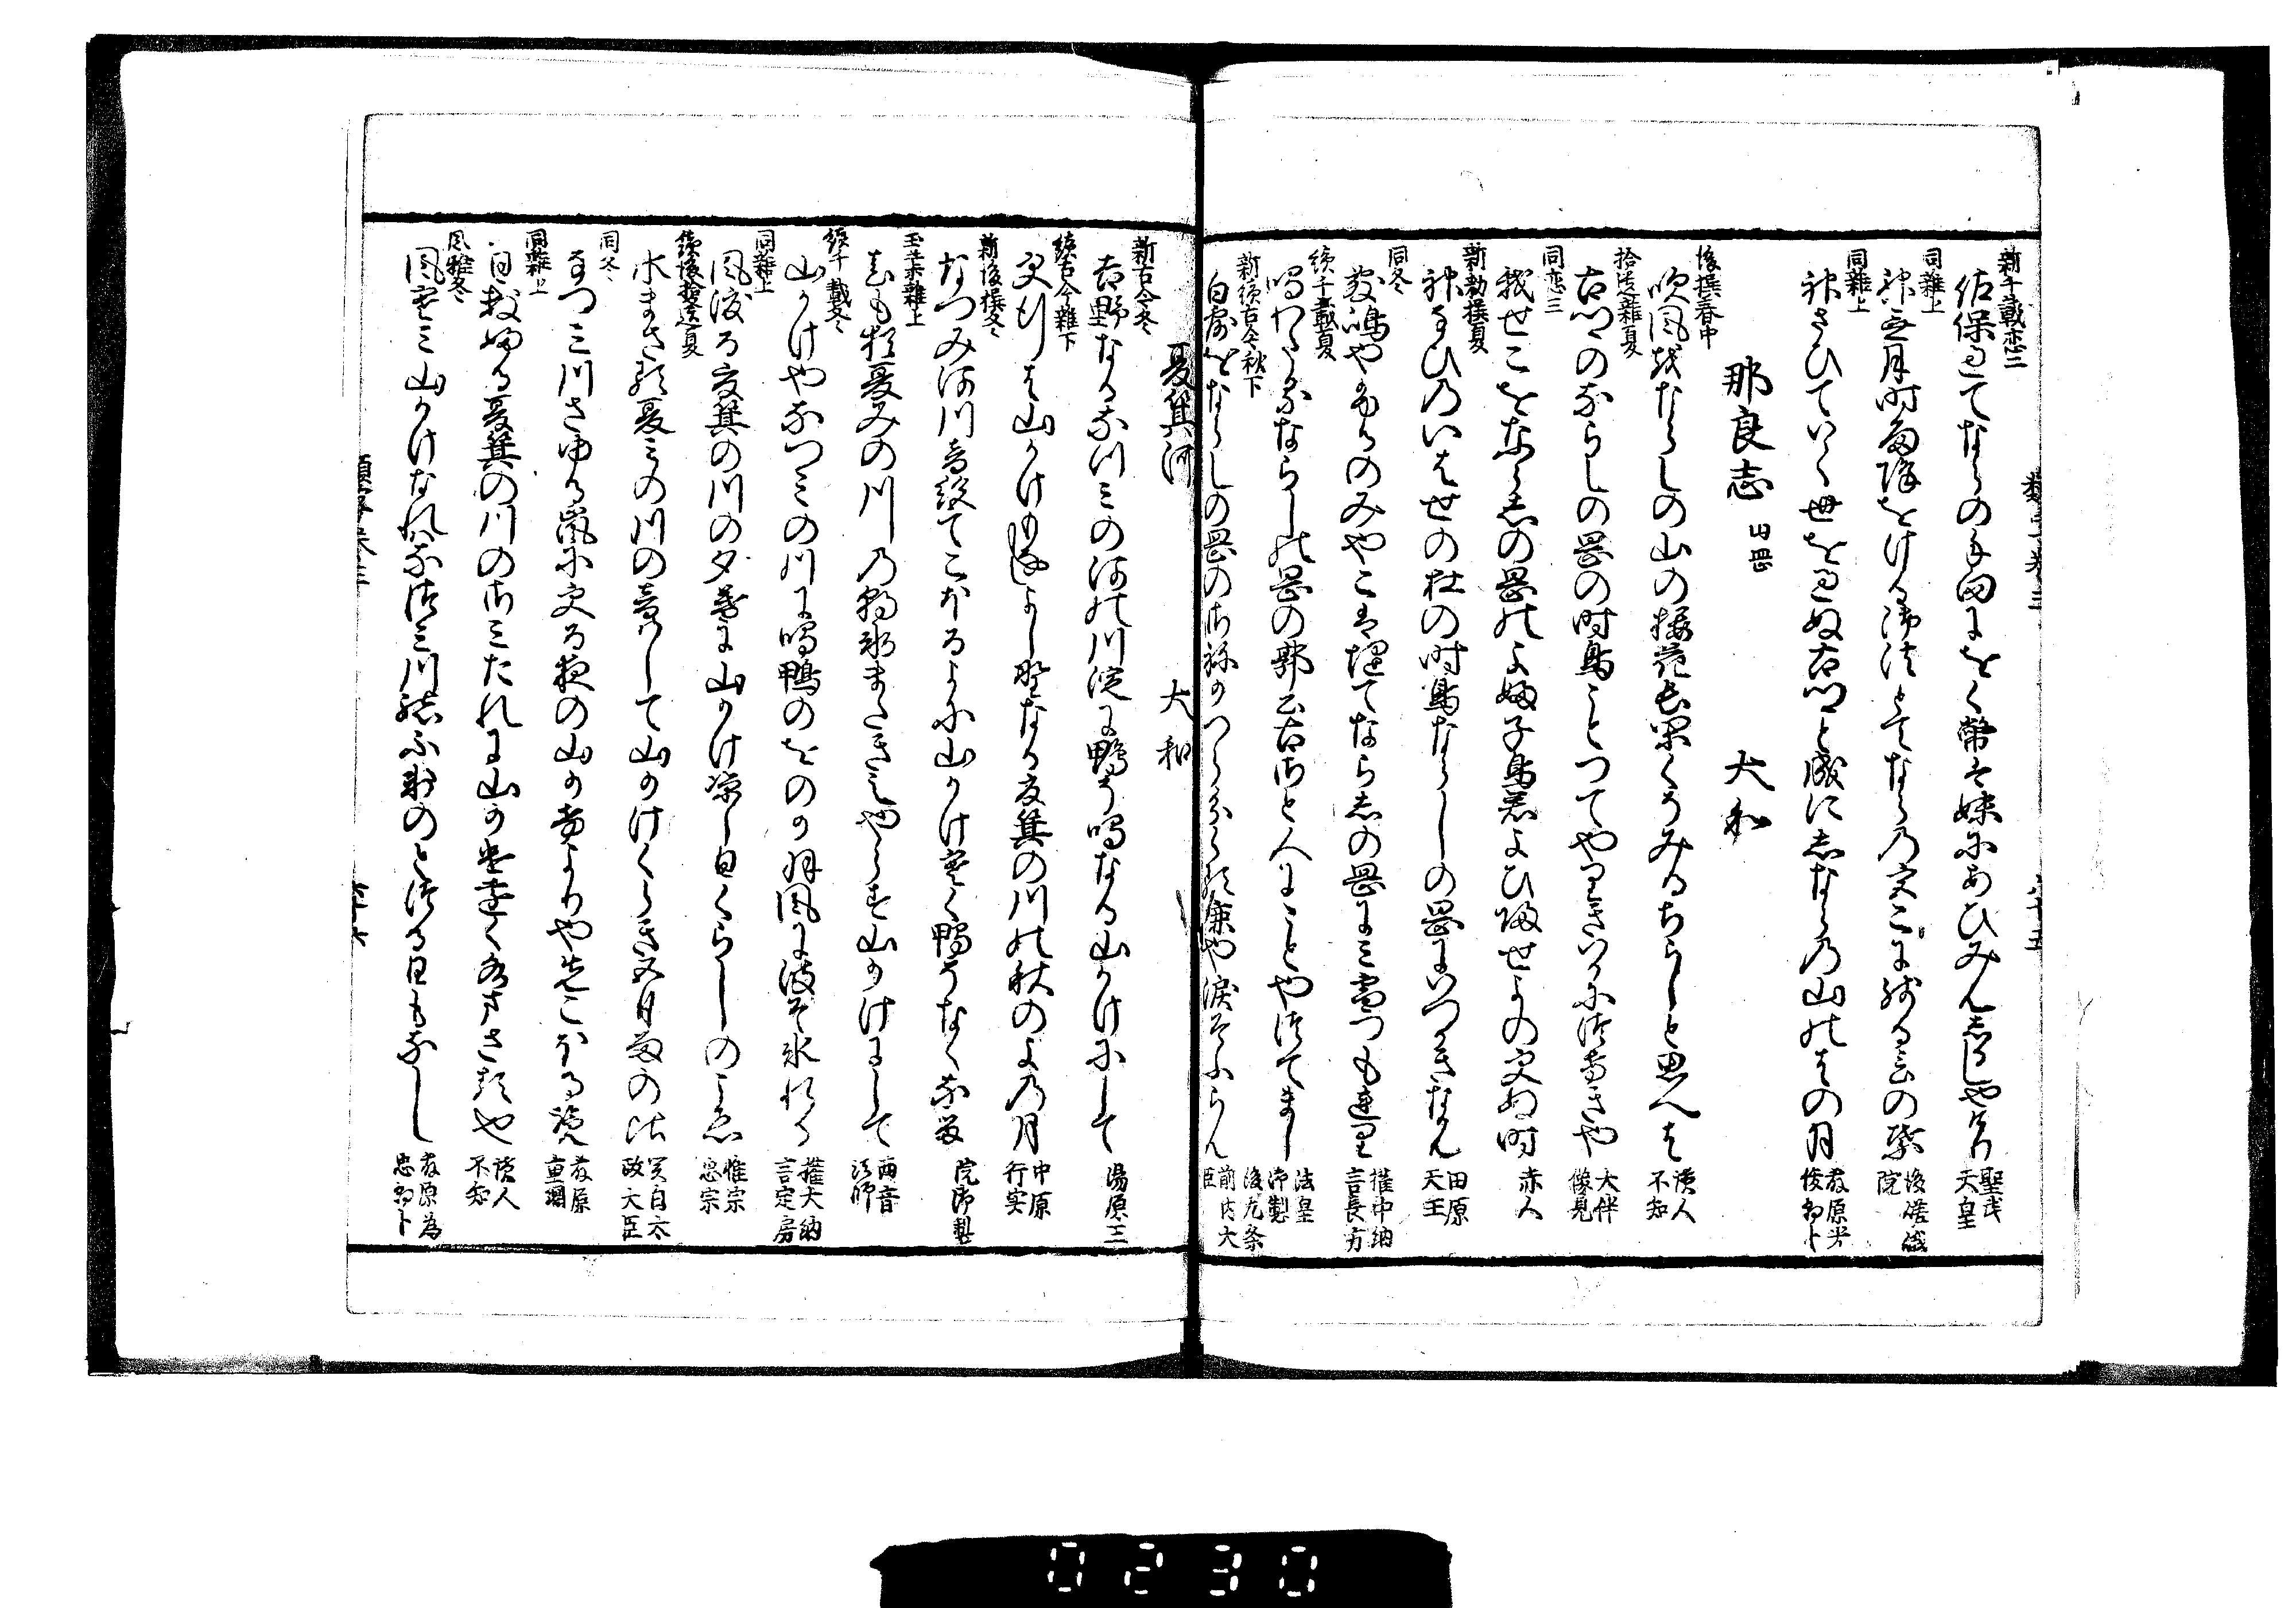 新千載恋二
佐保過てならの手向にをく幣は妹にあひみんしるしや有 聖武天皇
同雑上
神無月時雨降をける とてならの に残ることの葉 後嵯峨院
同雑上
神さひていく世をへぬ古郷と成にしならの山のはの月 藤原光俊朝臣
那良志 山 岡 大和
後撰春中
吹風をならしの山の桜花長閑くそみるちらしと思へは 読人不知
拾遺雑夏
古郷のならしの岡の時鳥ことつてやりきいかにつけきや 大伴像見
同恋三
我せこをならしの岡のよふ子鳥君よひ帰せよの更ぬ時 赤人
新勅撰夏
神なひのいはせの杜の時鳥ならしの岡にいつかきなかん 田原天王
同冬
霰 やかるのみやこは埋てならしの岡にみ雪つもれり 権中納言長方
続千載夏
鳴わたるならしの岡の郭公古郷人にことやつてまし 法皇御製
新続古今秋下
白露をならしの岡のさねかつら 涙そふらん 後九条前内大臣
夏箕河 大和
新古今冬
吉野なるなつみの河の川淀に鴨そ鳴なる山かけにして 湯原王
続古今雑下
更行は山かけ よし野なる夏箕の川の秋のよの月 中原行実
新後撰冬
なつみ河川音絶てこほるよに山かけ寒く鴨そなくなる 院御製
玉葉雑上
春も猶夏みの川の朝氷またきえやらす山かけにして 両音法師
続千載冬
山かけやなつみの川に鳴鴨のをのか羽風に波そ氷れる 権大納言定房
同雑上
風渡る夏箕の川の夕暮に山かけ涼し日くらしのこゑ 惟宗忠宗
続後拾遺夏
水まさる夏みの川の音はして山かけくらき五月雨の比 関白太政大臣
同冬
なつみ川さゆる嵐に更る夜の山かけよりや先こほる覧 藤原重綱
同雑上
日数ふる夏箕の川のさみたれに山かけ 水まさる也 読人不知
風雅冬
風寒み山かけなれやなつみ川 のとけき日もなし 藤原為忠朝臣